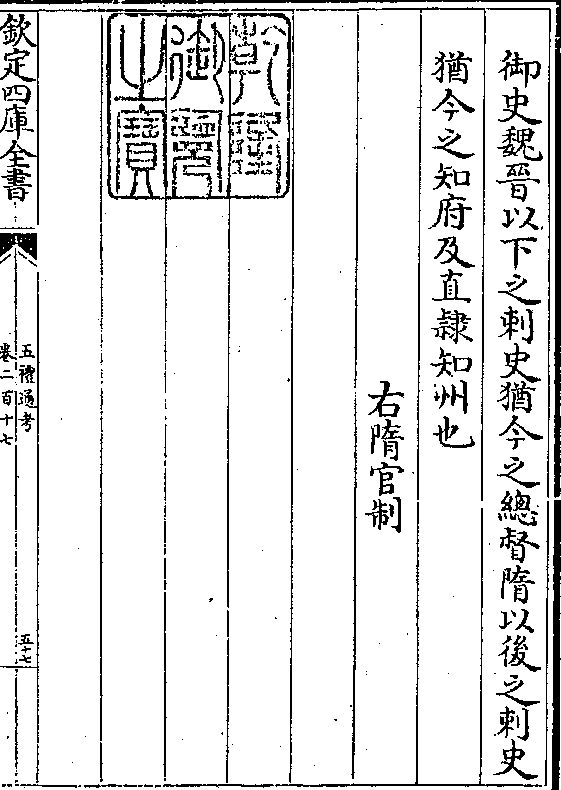 御史魏晉以下之刺史猶今之總督隋以後之刺史
猶今之知府及直隸知州也
右隋官制
乾隆
御覽
之寶
欽定四庫全書
五禮通考
卷二百十七
五十七